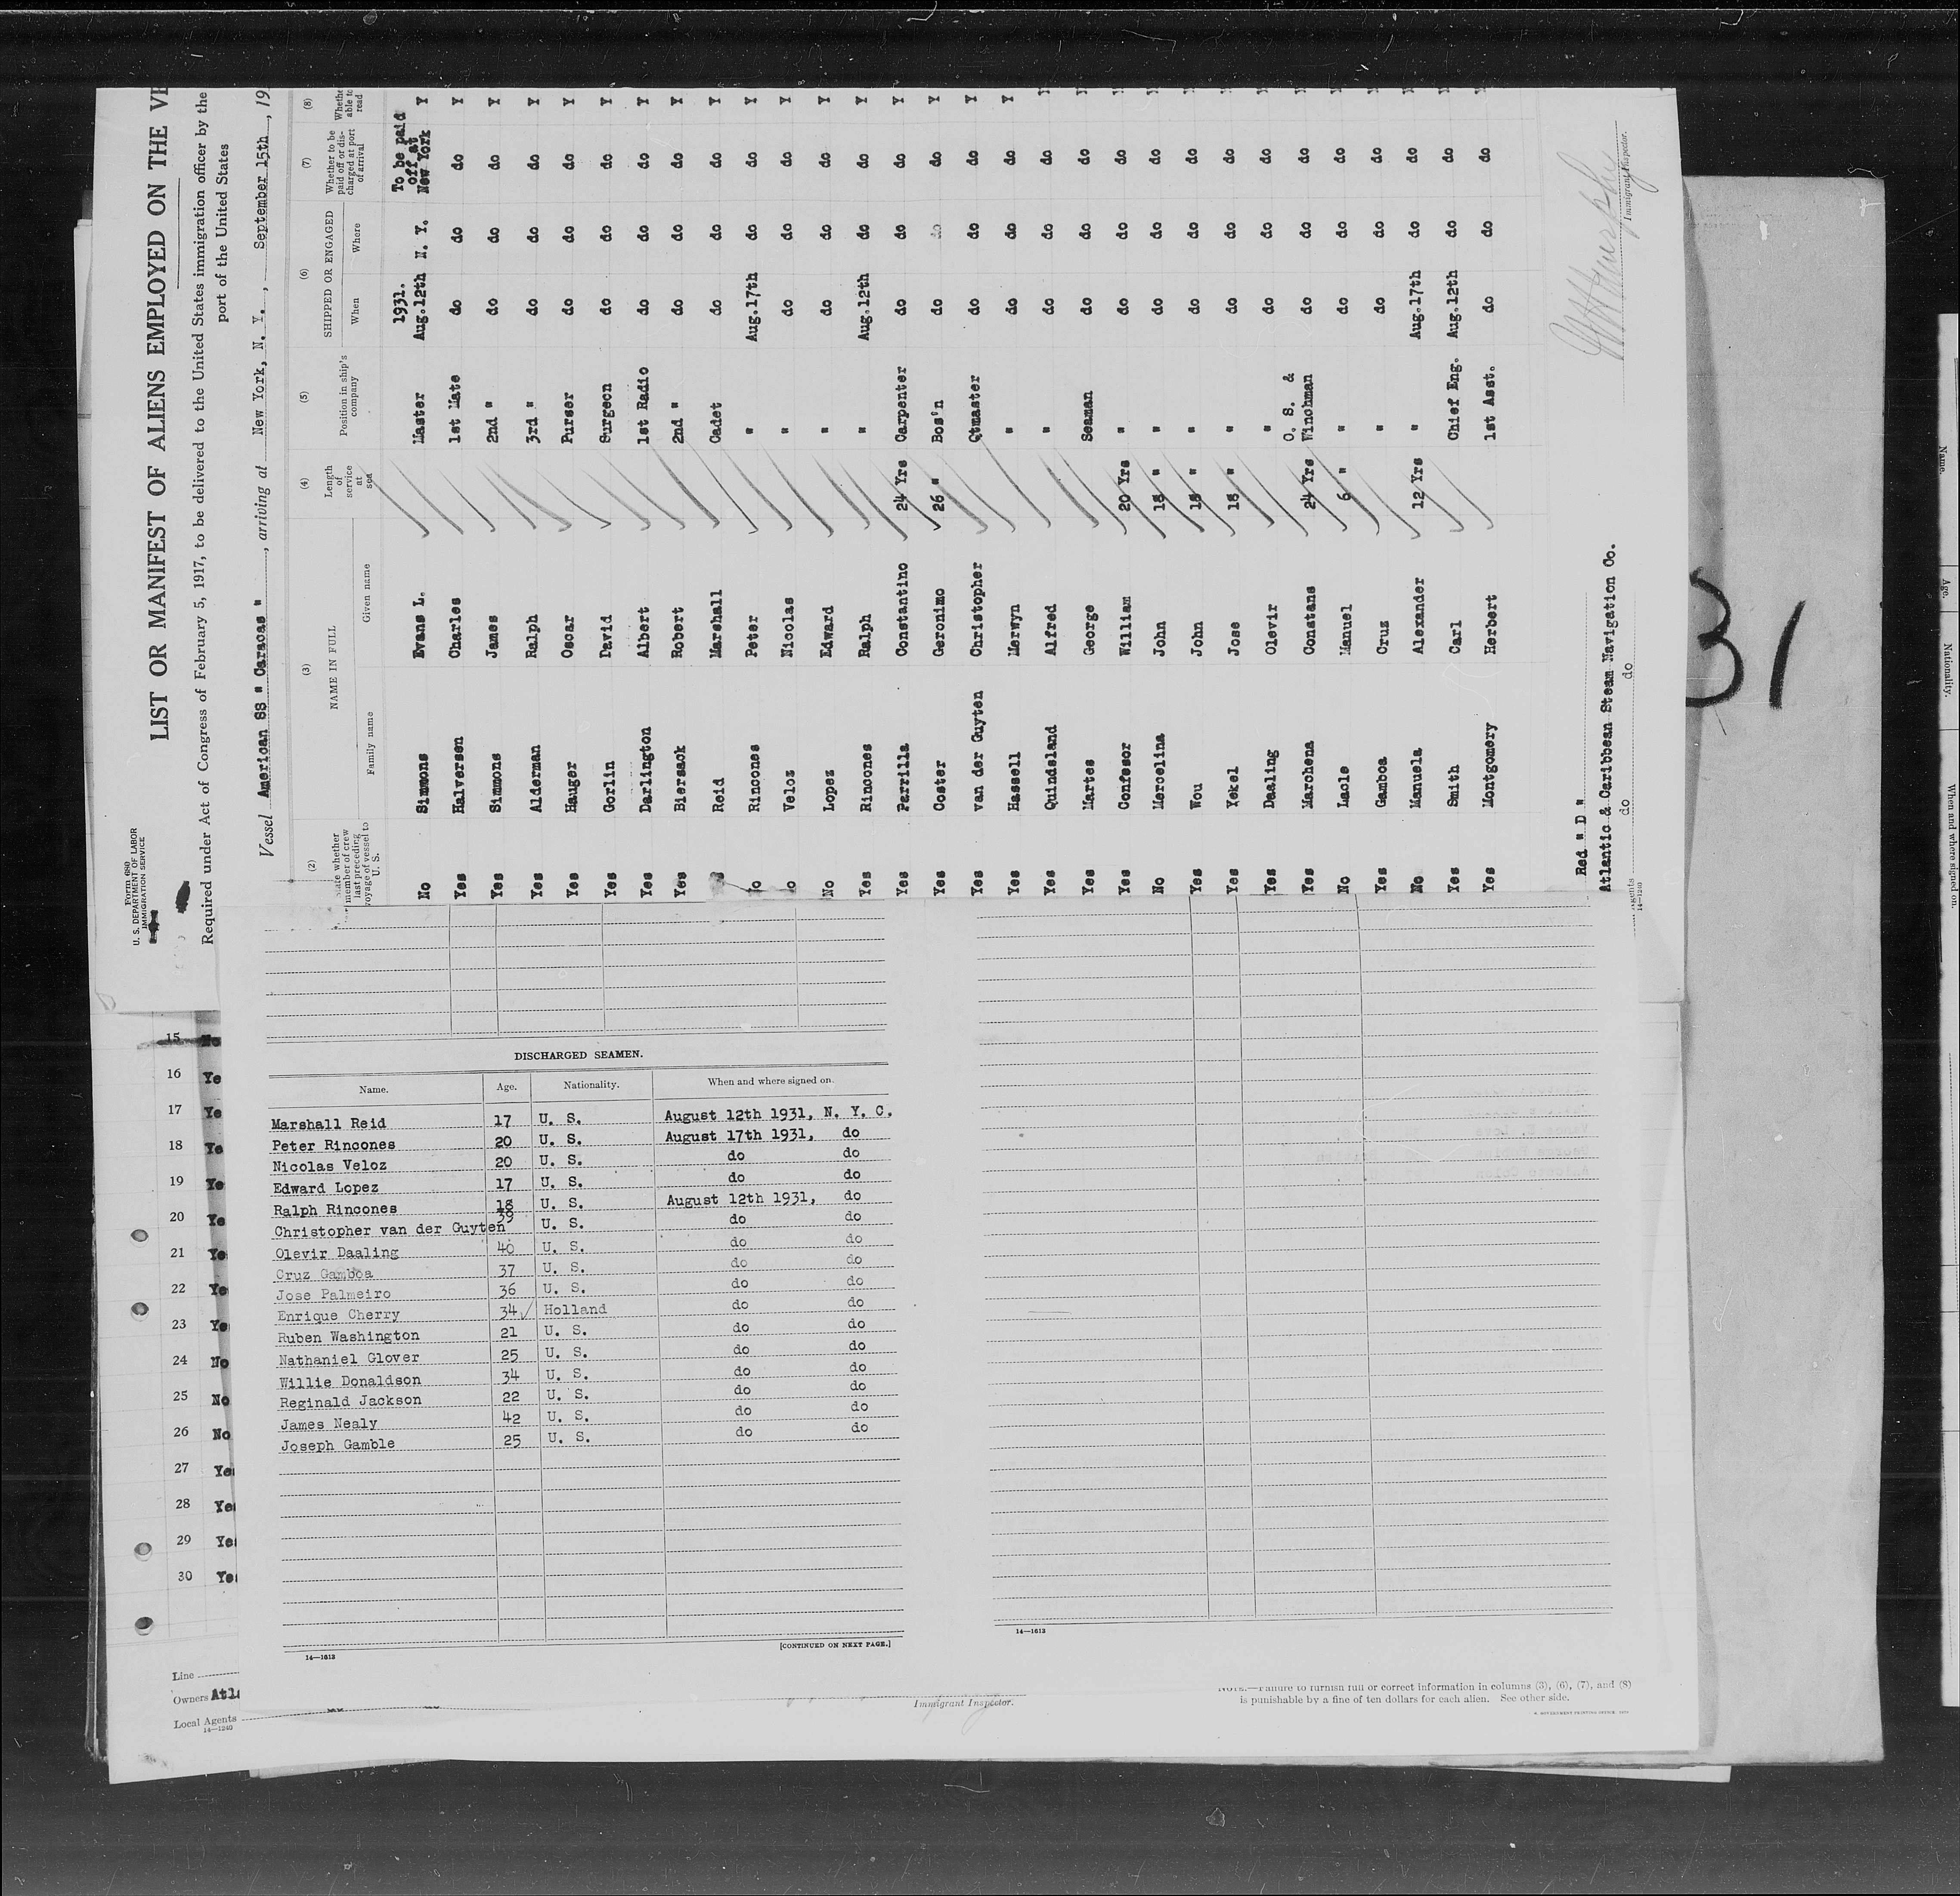 Form 680
U. S. DEPARTMENT OF LABOR
IMMIGRATION SERVICE
LIST OR MANIFEST OF ALIENS EMPLOYED ON THE VE
Required under Act of Congress of February 5, 1917, to be delivered to the United States immigration officer by the
port of the United States
Vessel American SS " Caracas ", arriving at New York, N. Y., September 15th, 19
(2) (3) (4) (5) (6) (7) (8)
whether member of crew last preceding voyage of vessel to U. S. NAME IN FULL Length of service at sea Position in ship's company SHIPPED OR ENGAGED Whether to be paid off or discharged at port of arrival Whether able to read
Family name Given name When Where
1931. To be paid off at
No Simmons Evans L. Master Aug.12th N. Y. New York Y
Yes Halversen Charles 1st Mate do do do Y
Yes Simmons James 2nd " do do do Y
Yes Alderman Ralph 3rd " do do do Y
Yes Hauger Oscar Purser do do do Y
Yes Gorlin David Surgeon do do do Y
Yes Darlington Albert 1st Radio do do do Y
Yes Biersack Robert 2nd " do do do Y
Reid Marshall Cadet do do do Y
No Rincones Peter " Aug.17th do do Y
No Veloz Nicolas " do do do Y
No Lopez Edward " do do do Y
Yes Rincones Ralph " Aug.12th do do Y
Yes Parrilla Constantino 24 Yrs Carpenter do do do Y
Yes Coster Geronimo 26 " Bos'n do do do Y
Yes van der Guyten Christopher Qtmaster do do do Y
Yes Hassell Merwyn " do do do Y
Yes Quindsland Alfred " do do do Y
Yes Martes George Seaman do do do Y
Yes Confesor William 20 Yrs " do do do
No Mercelina John 18 " " do do do
Yes Wou John 18 " " do do do
Yes Yekel Jose 18 " " do do do
Yes Daaling Olevir " do do do
O. S. &
Yes Marchena Constans 24 Yrs Winchman do do do
No Laole Manuel 6 " " do do do
Yes Gamboa Cruz " do do do
No Manuela Alexander 12 Yrs " Aug.17th do do
Yes Smith Carl Chief Eng. Aug.12th do do
Yes Montgomery Herbert 1st Asst. do do do
Red " D "
Atlantic & Caribbean Steam Navigation Co.
do do
14—1240
Immigrant Inspector.
31
DISCHARGED SEAMEN.
Name. Age. Nationality. When and where signed on.
Marshall Reid 17 U. S. August 12th 1931, N. Y. C.
Peter Rincones 20 U. S. August 17th 1931, do
Nicolas Veloz 20 U. S. do do
Edward Lopez 17 U. S. do do
Ralph Rincones 18 U. S. August 12th 1931, do
Christopher van der Guyten 39 U. S. do do
Olevir Daaling 40 U. S. do do
Cruz Gamboa 37 U. S. do do
Jose Palmeiro 36 U. S. do do
Enrique Cherry 34 Holland do do
Ruben Washington 21 U. S. do do
Nathaniel Glover 25 U. S. do do
Willie Donaldson 34 U. S. do do
Reginald Jackson 22 U. S. do do
James Nealy 42 U. S. do do
Joseph Gamble 25 U. S. do do
[CONTINUED ON NEXT PAGE.]
14—1613
14—1613
15 No
16 Ye
17 Ye
18 Ye
19 Ye
20 Ye
21 Ye
22 Ye
23 Ye
24 No
25 No
26 No
27 Ye
28 Ye
29 Ye
30 Ye
Line
Owners Atl
Local Agents
14—1240
Immigrant Inspector.
NOTE.—Failure to furnish full or correct information in columns (3), (6), (7), and (8)
is punishable by a fine of ten dollars for each alien. See other side.
Name.
Age.
Nationality.
When and where signed on.